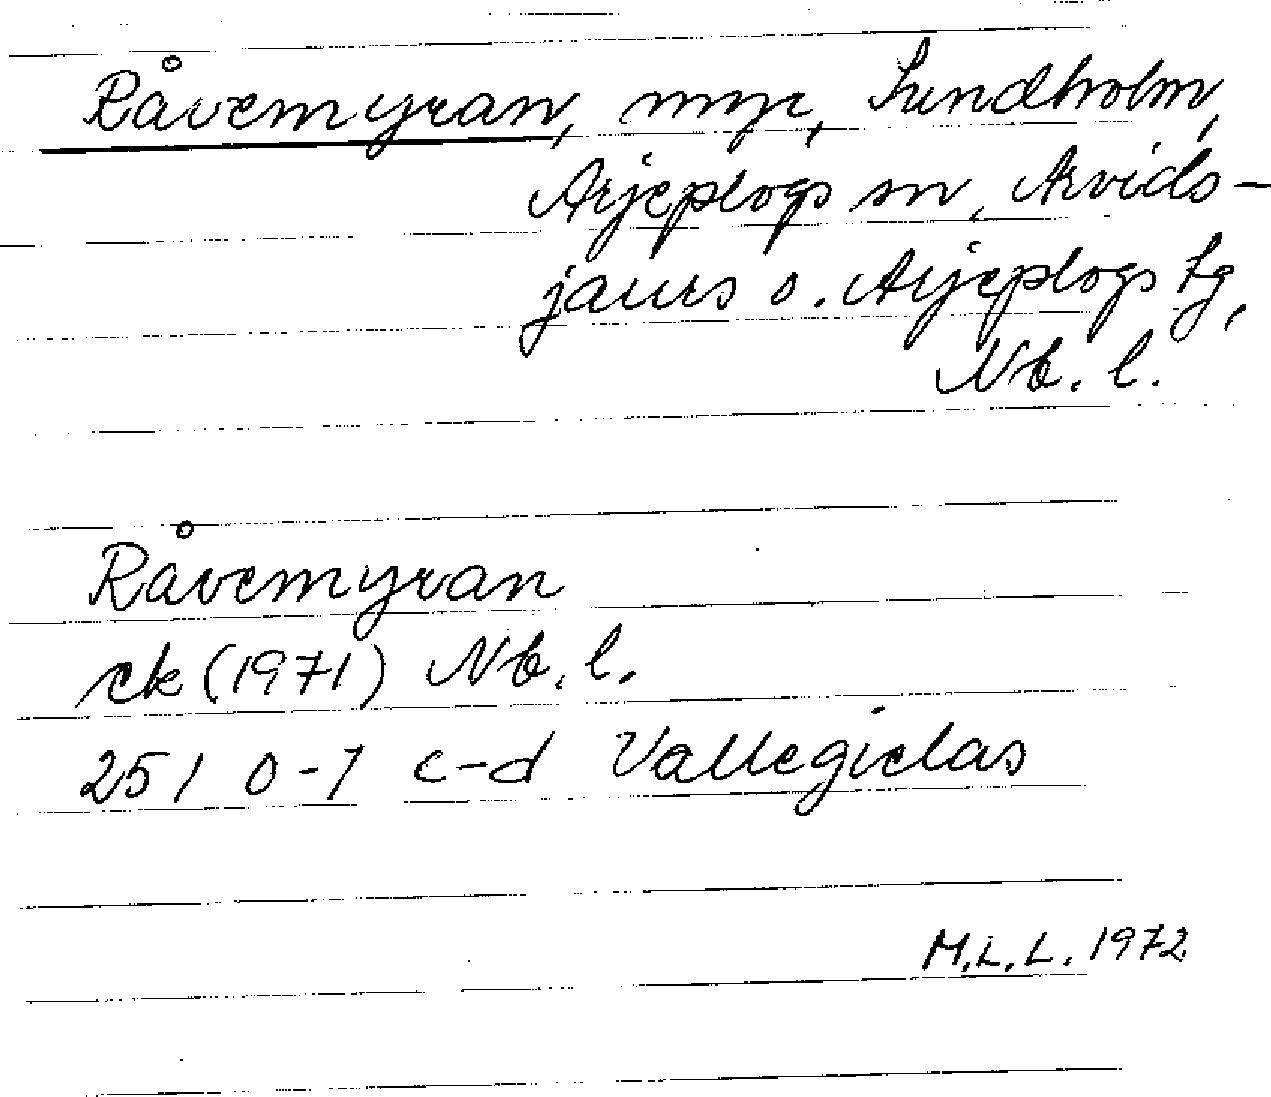 Råvemyran, myr, Sundholm,
Arjeplogs sn, Arvids-
jaurs o. Arjeplogs tg,
Nb. l.
Råvemyran
ek (1971) Nb. l.
251 0-1 c-d Vallegielas
M.L.L. 1972